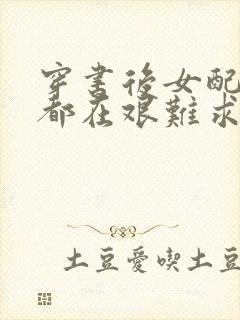 穿書後女配
都在艰難求
土豆愛喫土豆